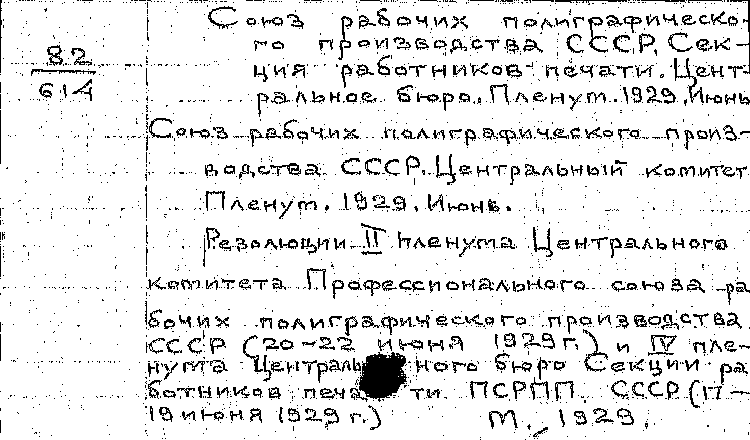 Союз рабочих полиграфическо-
го производства СССР. Сек-
82
ция работников печати. Цент-
614
ральное бюро. Пленум. 1929, Июнь
Союз рабочих полиграфического произ-
водства СССР. Центральный комитет
Пленум. 1929. Июнь.
Резолюции II пленума Центрального
комитета Профессионального союза ра
бочих полиграфического производства
СССР (20-22 июня 1929 г.) и IV пле-
нума Центрального бюро Секции ра
ботников печати ПСРПП СССР (17-
19 июня 1929 г.)
М., 1929.